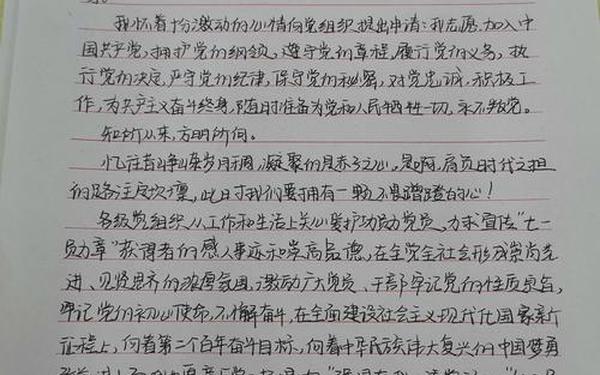 我怀着十分激动的心情向党组织提出申请:我志愿加入中
国共产党,拥护党的纲领,遵守党的章程,履行党的义务,执
行党的决定,严守党的纪律,保守党的秘密,对党忠诚,积极工
作,为共产主义奋斗终身,随时准备为党和人民牺牲一切,永不叛党。
知所从来,方明所向。
忆往昔峥嵘岁月稠,凝聚的是赤子之心。是啊,肩负时代之担
的路注定坎壈,此时我们要拥有一颗不畏蹭蹬的心!
各级党组织从工作和生活上关心爱护功勋党员,力求宣传“七一
勋章”获得者的感人事迹和崇高品德,在全党全社会形成崇尚先
进、见贤思齐的浓厚氛围,激励广大党员、干部牢记党的性质宗旨,
牢记党的初心使命,不懈奋斗,在全面建设社会主义现代化国家新
征程上,向着第二个百年奋斗目标,向着中华民族伟大复兴的中国梦勇